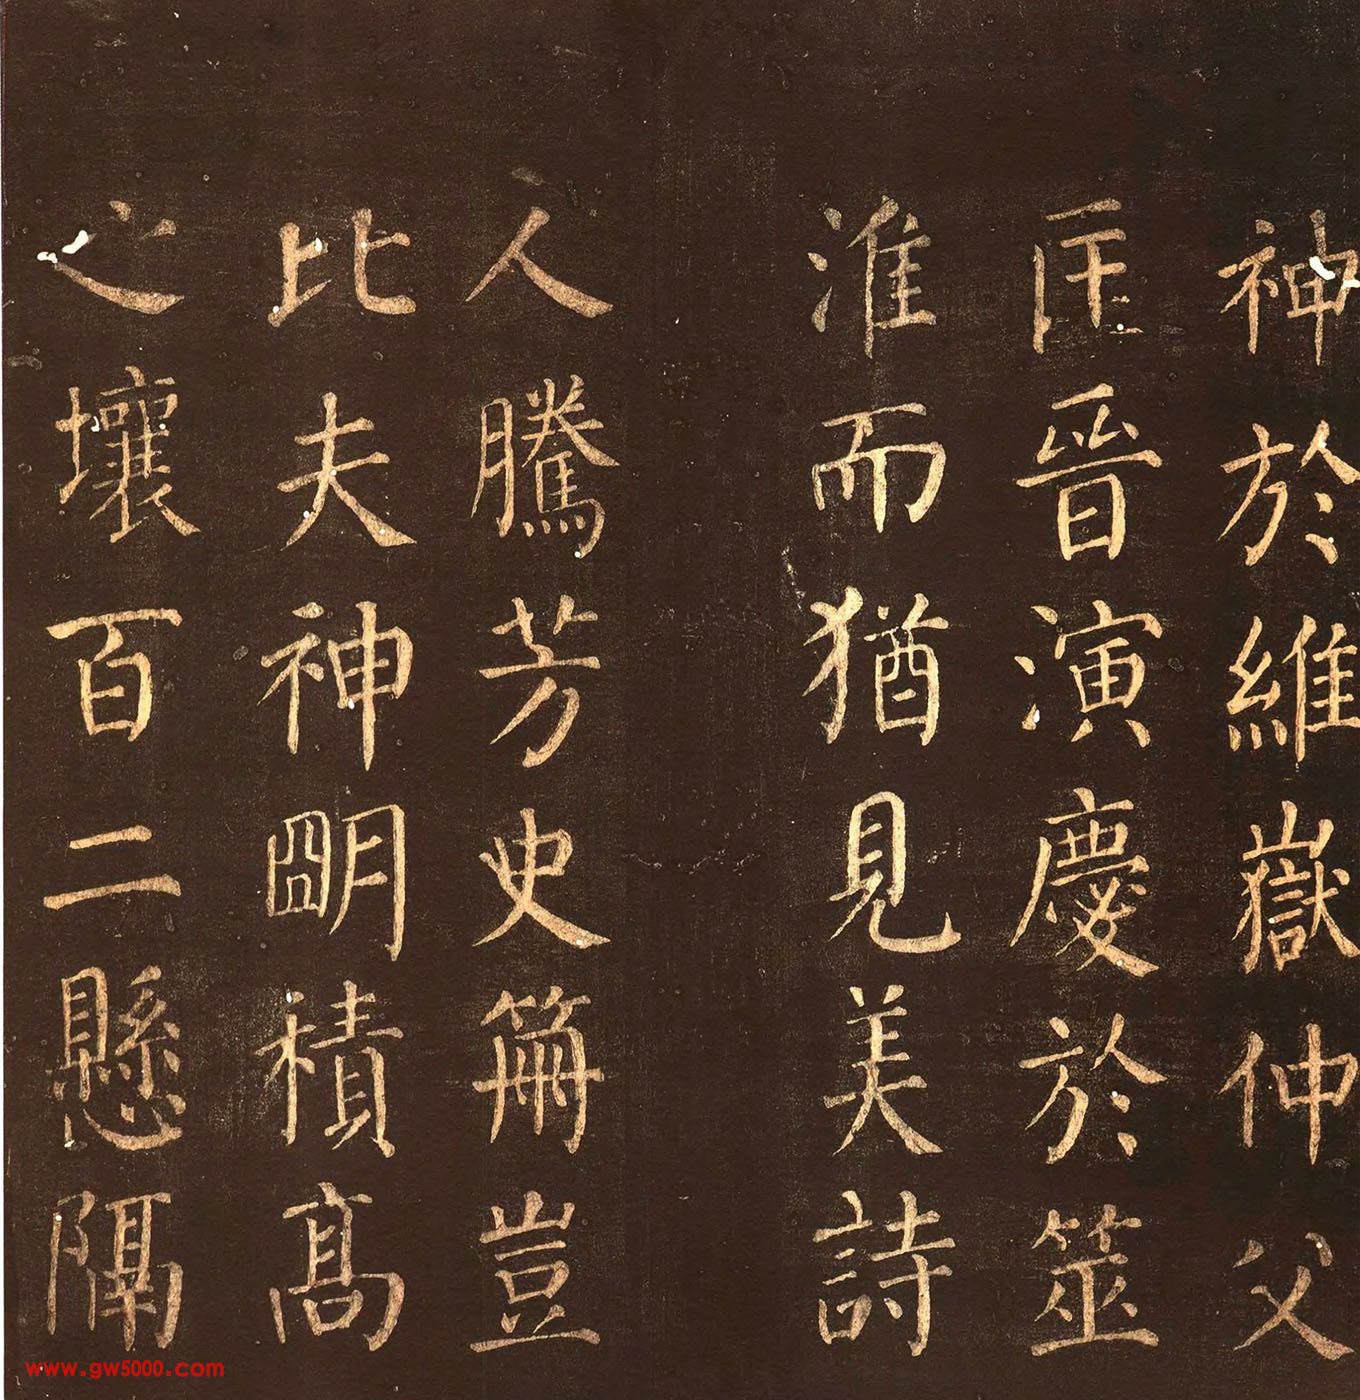 神於維嶽仲父
匡晉演慶於筮
淮而猶見美詩
人騰芳史冊豈
比夫神朙積高
之壤百二懸隔
www.gw5000.com